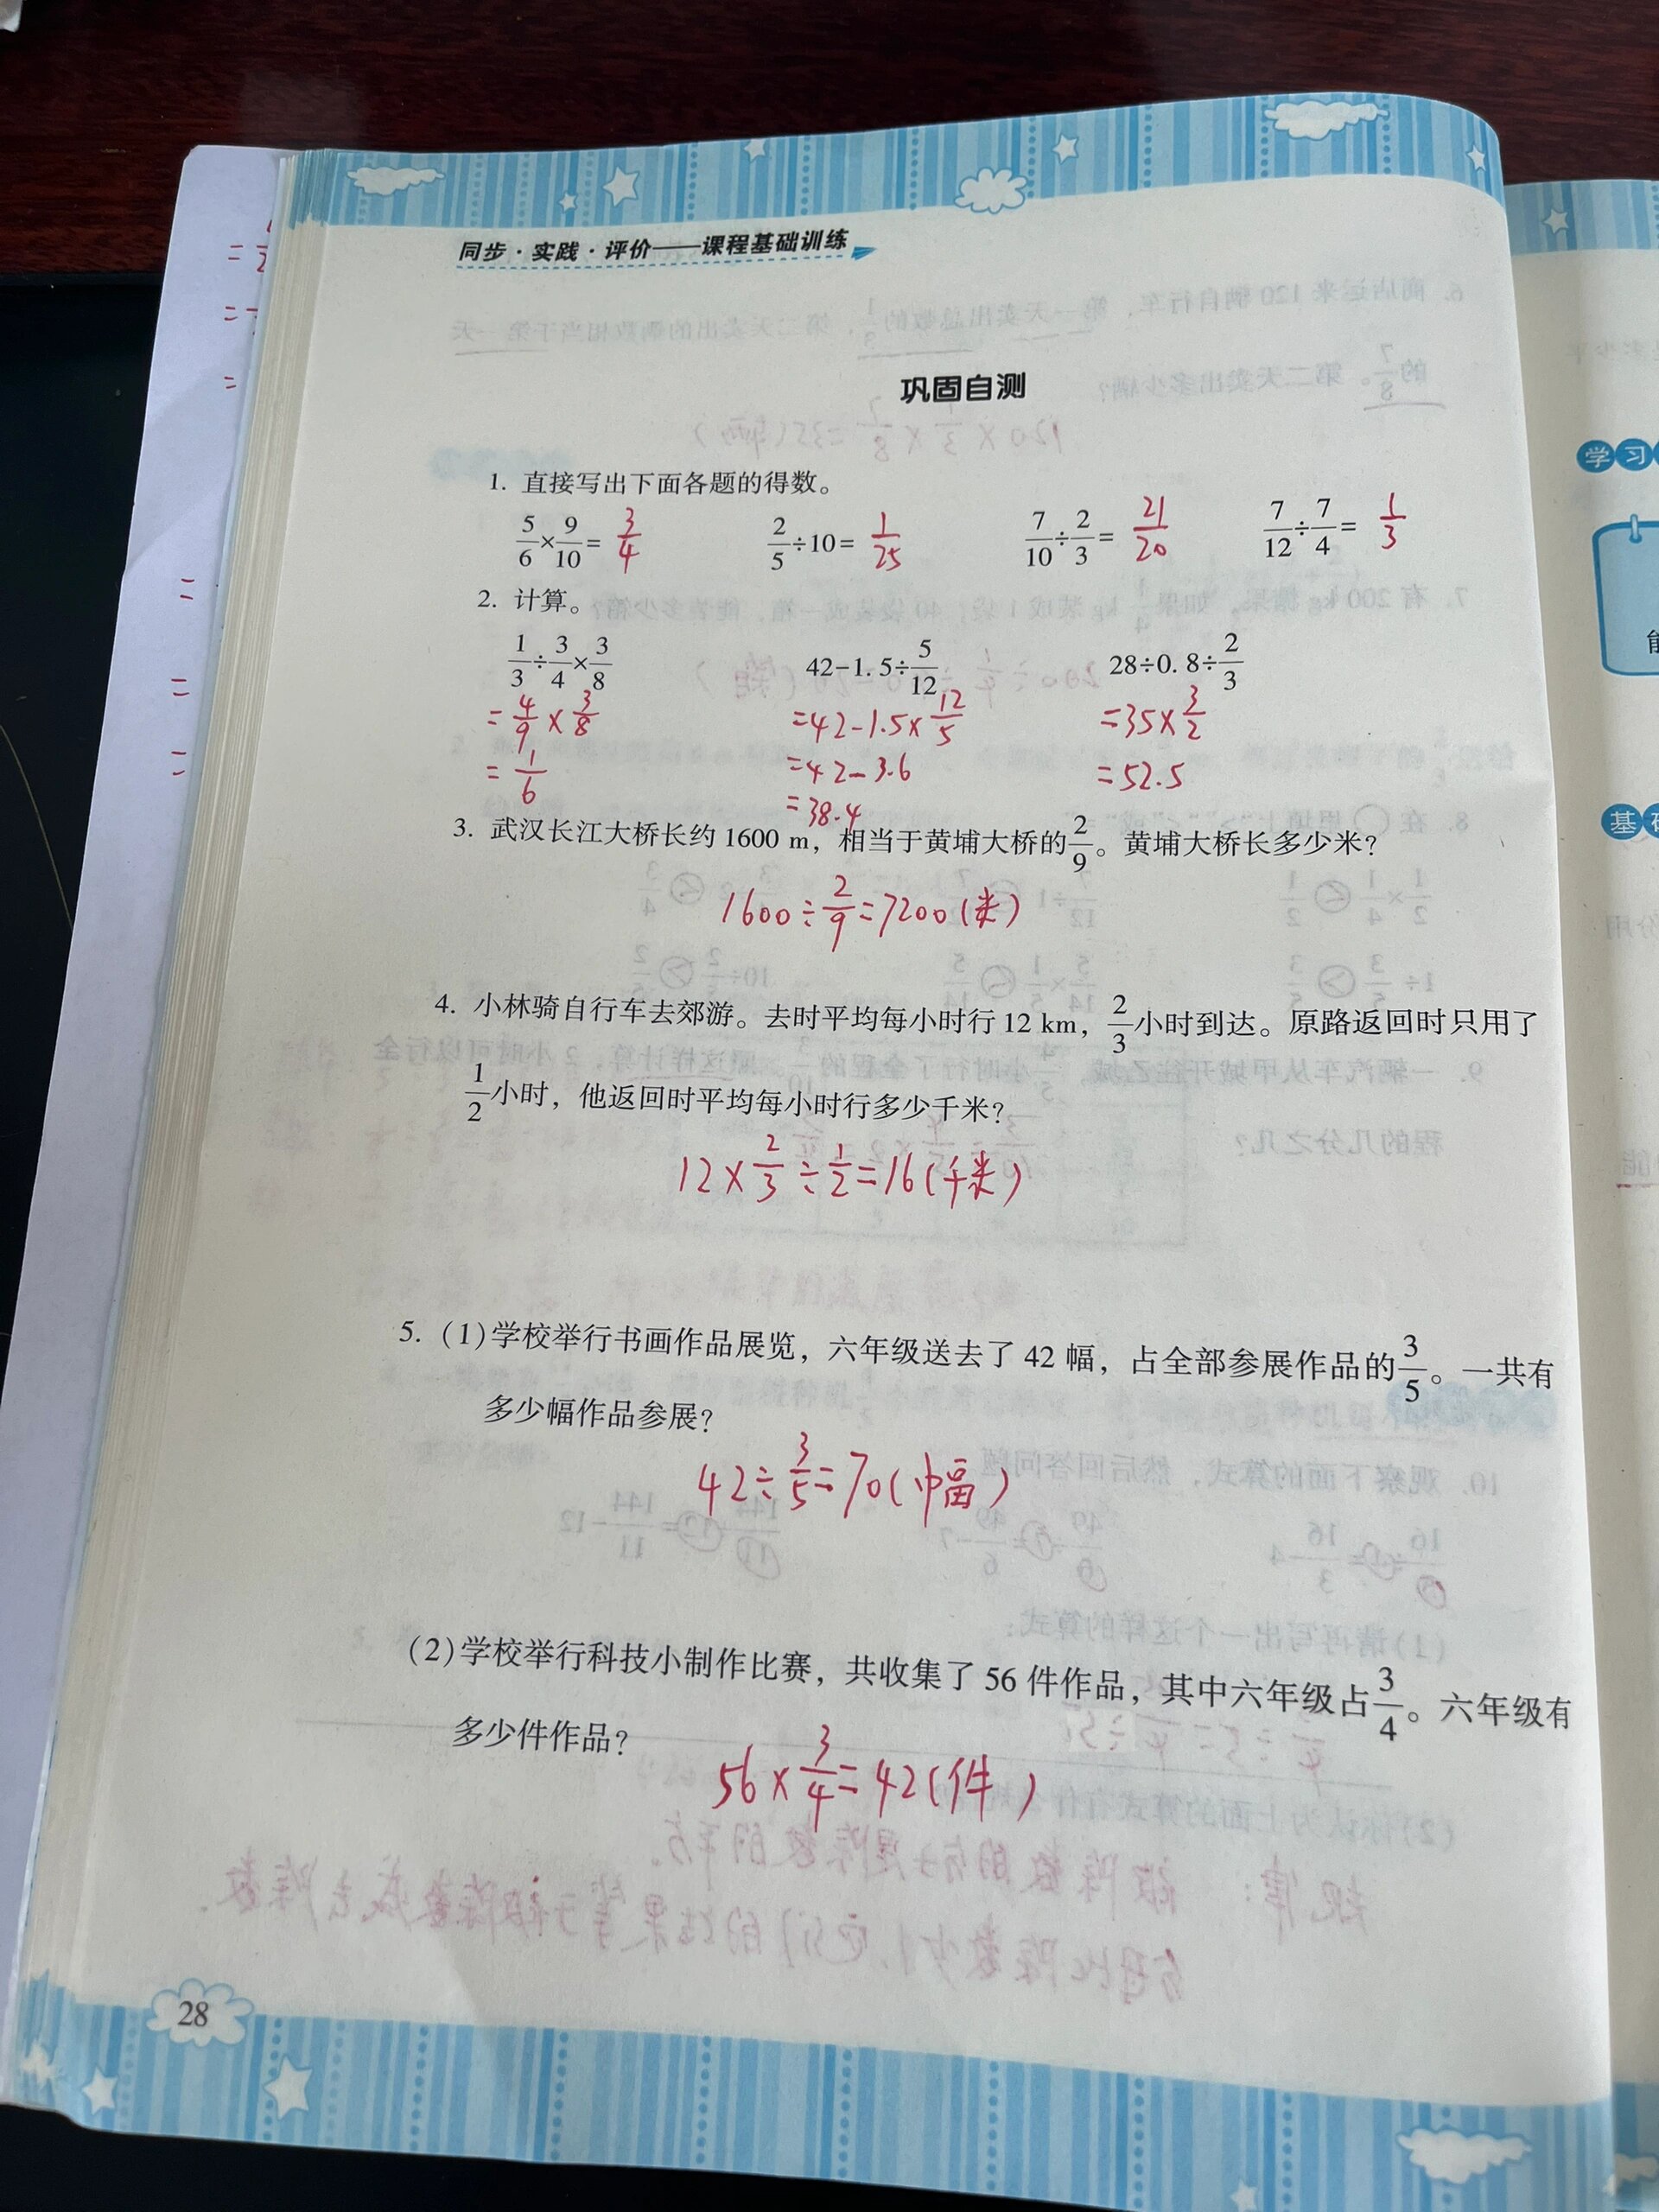 同步·实践·评价——课程基础训练
巩固自测
1. 直接写出下面各题的得数。
5/6×9/10= 3/4 2/5÷10= 1/25 7/10÷2/3= 21/20 7/12÷7/4= 1/3
2. 计算。
1/3÷3/4×3/8 42-1.5÷5/12 28÷0.8÷2/3
=4/9×3/8 =42-1.5×12/5 =35×3/2
=1/6 =42-3.6 =52.5
=38.4
3. 武汉长江大桥长约 1600 m，相当于黄埔大桥的2/9。黄埔大桥长多少米？
1600÷2/9=7200(米)
4. 小林骑自行车去郊游。去时平均每小时行 12 km，2/3小时到达。原路返回时只用了
1/2小时，他返回时平均每小时行多少千米？
12×2/3÷1/2=16(千米)
5. (1)学校举行书画作品展览，六年级送去了 42 幅，占全部参展作品的3/5。一共有
多少幅作品参展？
42÷3/5=70(幅)
(2)学校举行科技小制作比赛，共收集了 56 件作品，其中六年级占3/4。六年级有
多少件作品？
56×3/4=42(件)
28
学习
基